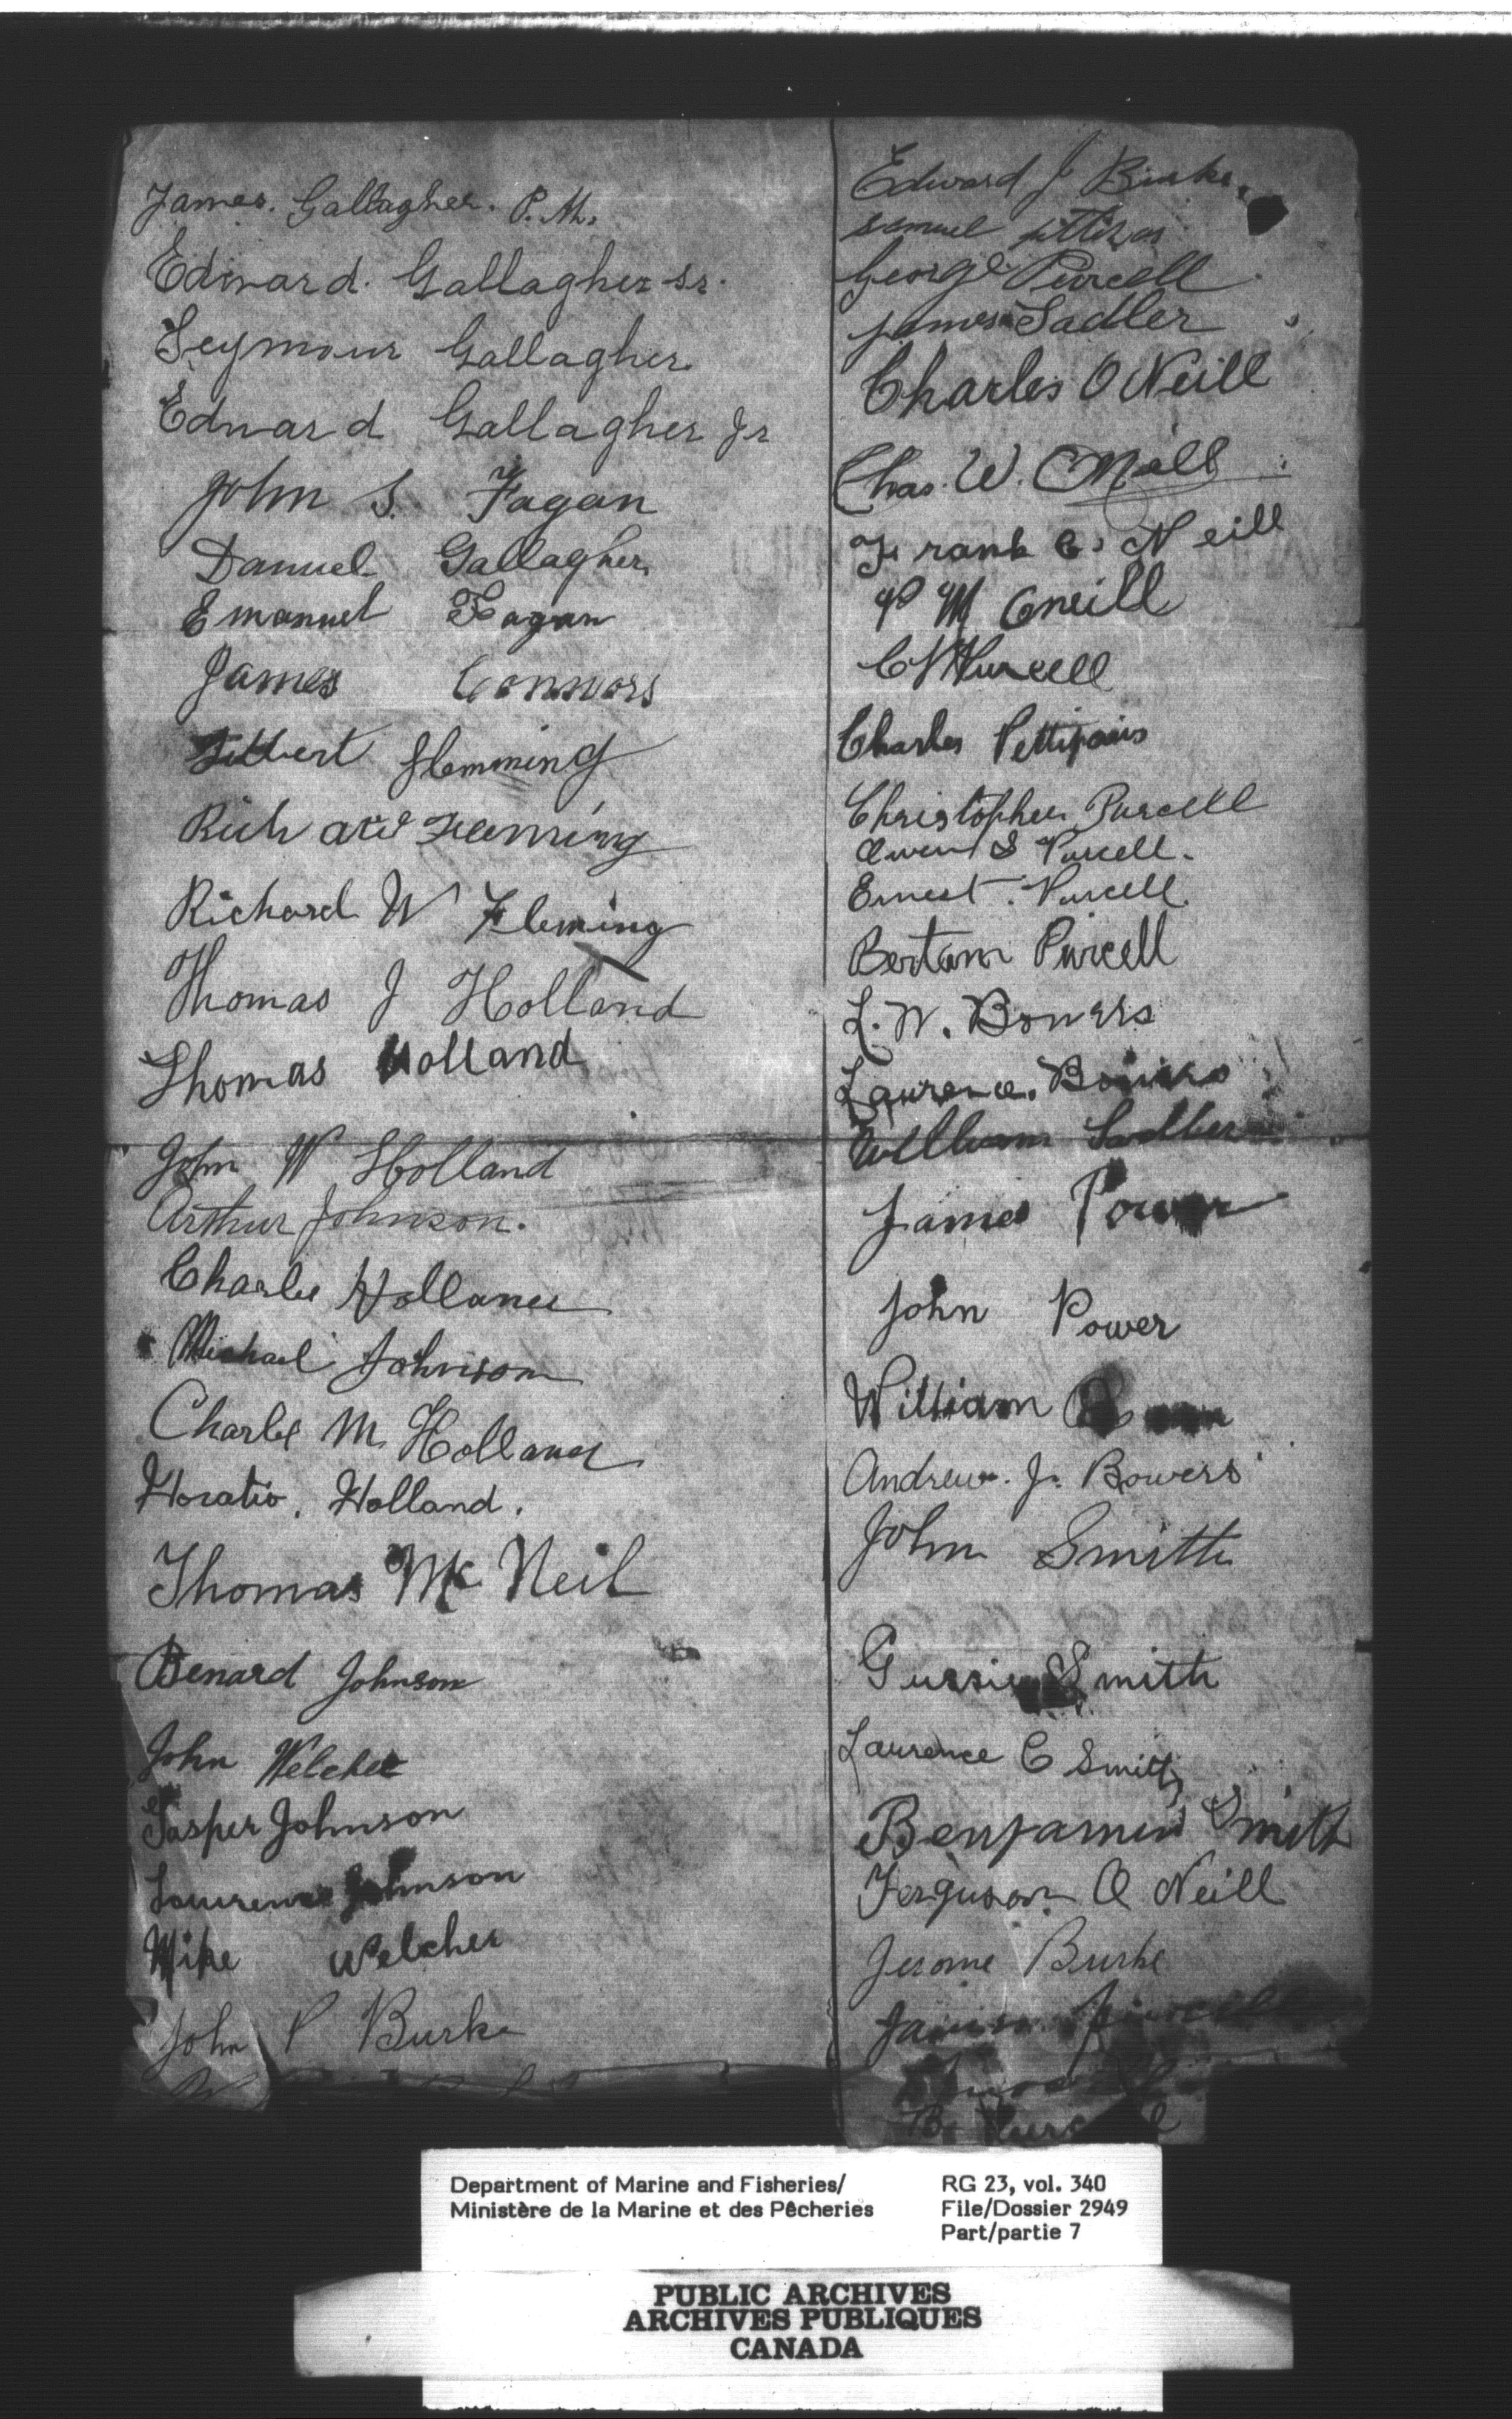 James. Gallagher. P.M.
Edward. Gallagher Sr.
Seymour Gallagher
Edward Gallagher Jr
John S. Fagan
Danuel Gallagher
Emanuel Fagan
James Connors
Flemming
Richard Fleeming
Richard W Fleming
Thomas J Holland
Thomas Holland
John W Holland
Arthur Johnson.
Charlie Holland
Michael Johnson
Charles M Holland
Horatio. Holland.
Thomas McNeil
Benard Johnson
John Welcher
Jasper Johnson
Laurence Johnson
Mike Welcher
John P Burke
Edward J Burke
Samuel
George Purcell
James Sadler
Charles O Neill
Chas. W. ONeill
Frank O Neill
P M Oneill
Purcell
Charles Pettipais
Christopher Purcell
Owen S Purcell.
Ernest. Purcell.
Bertam Purcell
L. W. Bowers
Laurence. Bowers
William Sadler
James Power
John Power
William
Andrew. J. Bowers
John Smith
Gussie Smith
Laurence C Smith
Benjamin Smith
Ferguson O Neill
Jerome Burke
James Purcell
B.
Department of Marine and Fisheries/
Ministère de la Marine et des Pêcheries
RG 23, vol. 340
File/Dossier 2949
Part/partie 7
PUBLIC ARCHIVES
ARCHIVES PUBLIQUES
CANADA